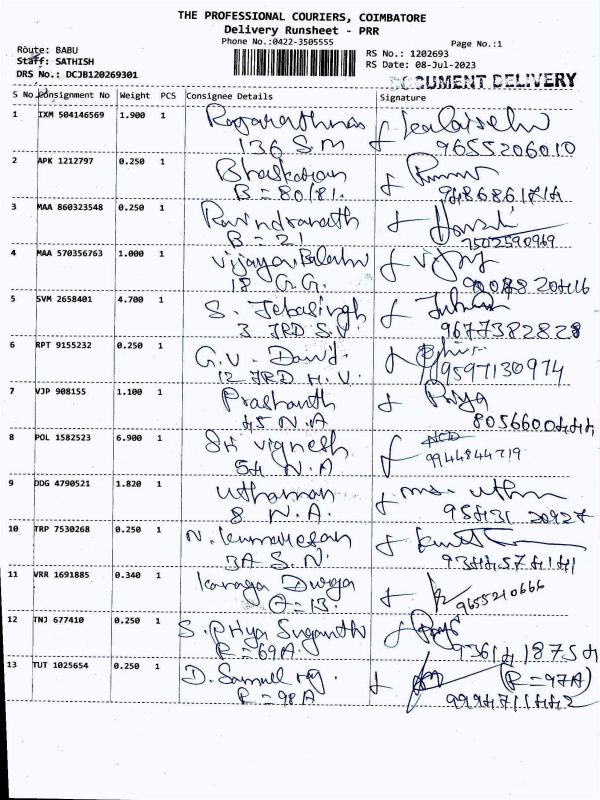 THE PROFESSIONAL COURIERS, COIMBATORE
Delivery Runsheet - PRR
Phone No.:0422-3505555
Page No.:1
Route: BABU
RS No.: 1202693
Staff: SATHISH
RS Date: 08-Jul-2023
DRS No.: DCJB120269301
DOCUMENT DELIVERY
S No. Consignment No Weight PCS Consignee Details Signature
1 IXM 504146569 1.900 1 Rajarathnam Kalaiselvi
136 S M 9655206010
2 APK 1212797 0.250 1 Bhaskaran
B = 80/81.
3 MAA 860323548 0.250 1 Ravindranath
B = 21 7502590969
4 MAA 570356763 1.000 1 Vijaya Balaho
18 G.G.
5 SVM 2658401 4.700 1 S. Jebasingh
3 JRD S.V. 9677382828
6 RPT 9155232 0.250 1 G.V. David
12 JRD H.V. 9597130974
7 VJP 908155 1.100 1 Prashanth Priya
45 N.A 8056600444
8 POL 1582523 6.900 1 Sri Vignesh
54 N.A 9944844719
9 DDG 4790521 1.820 1 Uthaman
8 N.A. 95431 20927
10 TRP 7530268 0.250 1 N. Kumaresan
3A S.N. 9344574141
11 VRR 1691885 0.340 1 Kanaga Durga
O = 13. 9655210666
12 TNJ 677410 0.250 1 S. Priya Suganthi
R = 69A. 93614 18754
13 TUT 1025654 0.250 1 D. Samuel raj. (R = 97A)
R = 98A 9994711442